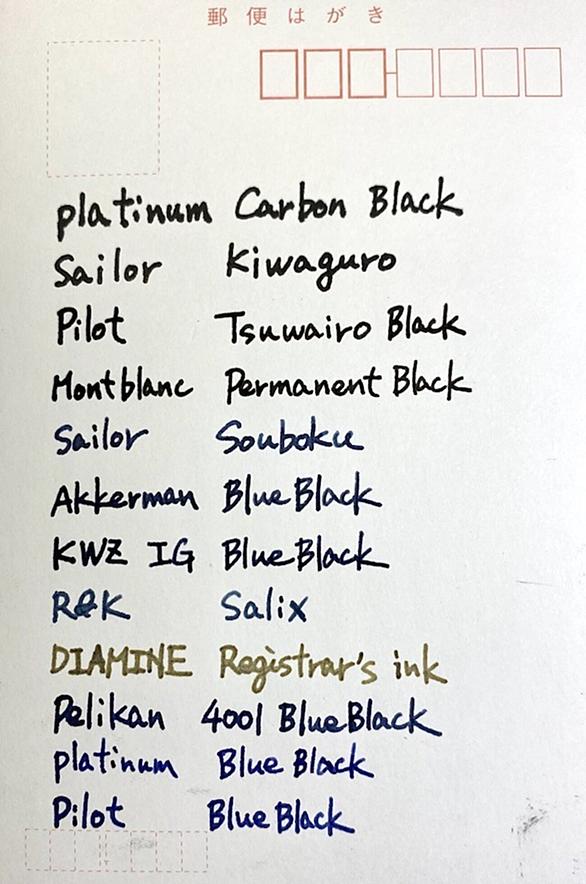 郵便はがき
platinum Carbon Black
Sailor Kiwaguro
Pilot Tsuwairo Black
Montblanc Permanent Black
Sailor Souboku
Akkerman Blue Black
KWZ IG Blue Black
R&K Salix
DIAMINE Registrar's ink
Pelikan 4001 Blue Black
platinum Blue Black
Pilot Blue Black